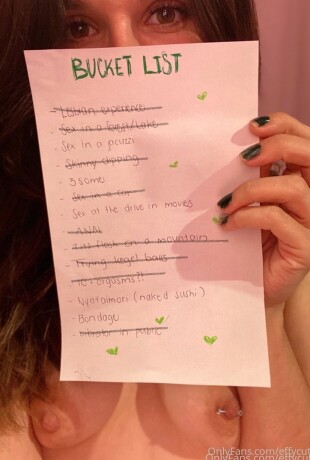 BUCKET LIST
- Lesbian experience
- Sex in a forest/Lake
- Sex in a jacuzzi
- Skinny dipping
- 3some
- Sex in a car
- Sex at the drive in movies
- ANAL
- Tits flash on a mountain
- Trying kegel balls
- 10+ orgasms?!
- Nyotaimori (naked sushi)
- Bondage
- Vibrator in public
OnlyFans.com/effycut
OnlyFans.com/effycut